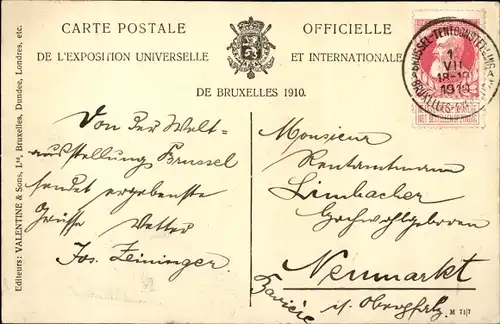 CARTE POSTALE OFFICIELLE
DE L'EXPOSITION UNIVERSELLE ET INTERNATIONALE
DE BRUXELLES 1910.
Editeurs: VALENTINE & SONS, Ld, Bruxelles, Dundee, Londres, etc.
BRUSSEL-TENTOONSTELLING
1
VII
18-19
1910
NIET BESTELLEN OP ZONDAG
Von der Welt-
ausstellung Brussel
sendet ergebenste
Grüsse Vetter
Jos. Zeininger.
Monsieur
Rentamtmann
Limbacher
Hochwohlgeboren
Neumarkt
Bavière
i. Oberpfalz.
M 717